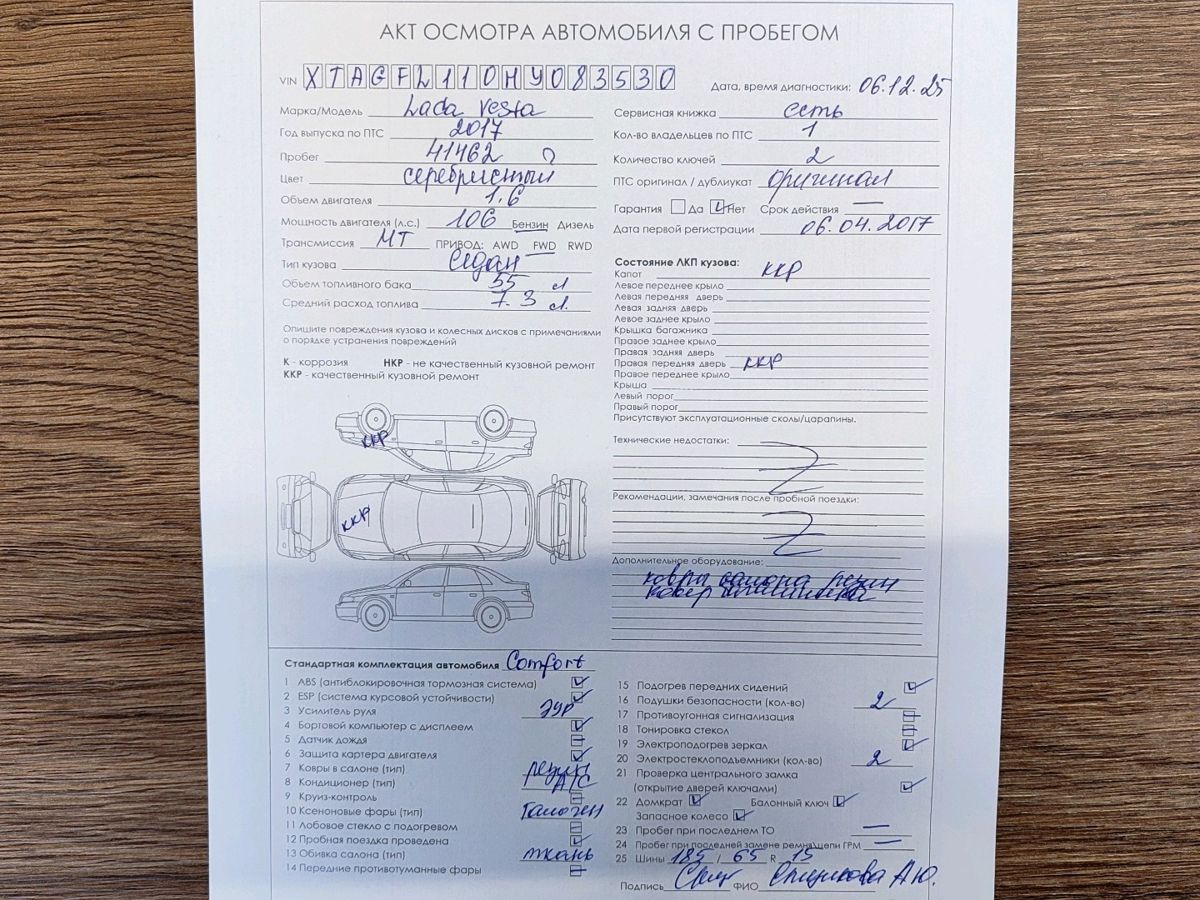 АКТ ОСМОТРА АВТОМОБИЛЯ С ПРОБЕГОМ
VIN XTAGFL110HY083530
Дата, время диагностики: 06.12.25
Марка/Модель Lada Vesta
Год выпуска по ПТС 2017
Пробег 41462
Цвет серебристый
Объем двигателя 1.6
Мощность двигателя (л.с.) 106 Бензин Дизель
Трансмиссия МТ ПРИВОД: AWD FWD RWD
Тип кузова Седан
Объем топливного бака 55 л
Средний расход топлива 7.3 л.
Опишите повреждения кузова и колесных дисков с примечаниями
о порядке устранения повреждений
К - коррозия НКР - не качественный кузовной ремонт
ККР - качественный кузовной ремонт
ККР
ККР
Сервисная книжка есть
Кол-во владельцев по ПТС 1
Количество ключей 2
ПТС оригинал / дубликат оригинал
Гарантия Да Нет Срок действия —
Дата первой регистрации 06.04.2017
Состояние ЛКП кузова:
Капот ККР
Левое переднее крыло
Левая передняя дверь
Левая задняя дверь
Левое заднее крыло
Крышка багажника
Правое заднее крыло
Правая задняя дверь
Правая передняя дверь ККР
Правое переднее крыло
Крыша
Левый порог
Правый порог
Присутствуют эксплуатационные сколы/царапины.
Технические недостатки:
Рекомендации, замечания после пробной поездки:
Дополнительное оборудование:
ковры салона резин
ковер
Стандартная комплектация автомобиля Comfort
1 ABS (антиблокировочная тормозная система)
2 ESP (система курсовой устойчивости)
3 Усилитель руля ЭУР
4 Бортовой компьютер с дисплеем
5 Датчик дождя
6 Защита картера двигателя
7 Ковры в салоне (тип) резин
8 Кондиционер (тип)
9 Круиз-контроль
10 Ксеноновые фары (тип) Галоген
11 Лобовое стекло с подогревом
12 Пробная поездка проведена
13 Обивка салона (тип) ткань
14 Передние противотуманные фары
15 Подогрев передних сидений
16 Подушки безопасности (кол-во) 2
17 Противоугонная сигнализация
18 Тонировка стекол
19 Электроподогрев зеркал
20 Электростеклоподъемники (кол-во) 2
21 Проверка центрального замка
(открытие дверей ключами)
22 Домкрат Балонный ключ
Запасное колесо
23 Пробег при последнем ТО —
24 Пробег при последней замене ремня/цепи ГРМ —
25 Шины 185 / 65 R 15
Подпись ФИО А.Ю.